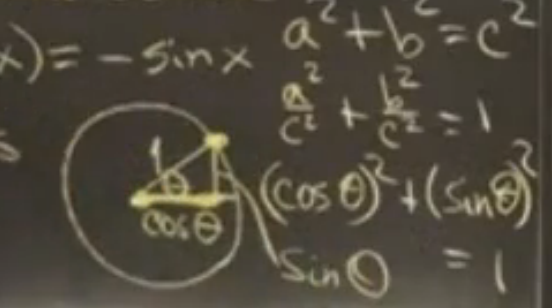 x) = - sin x
a² + b² = c²
a²/c² + b²/c² = 1
1
θ
cos θ
(cos θ)² + (sin θ)²
sin θ
= 1